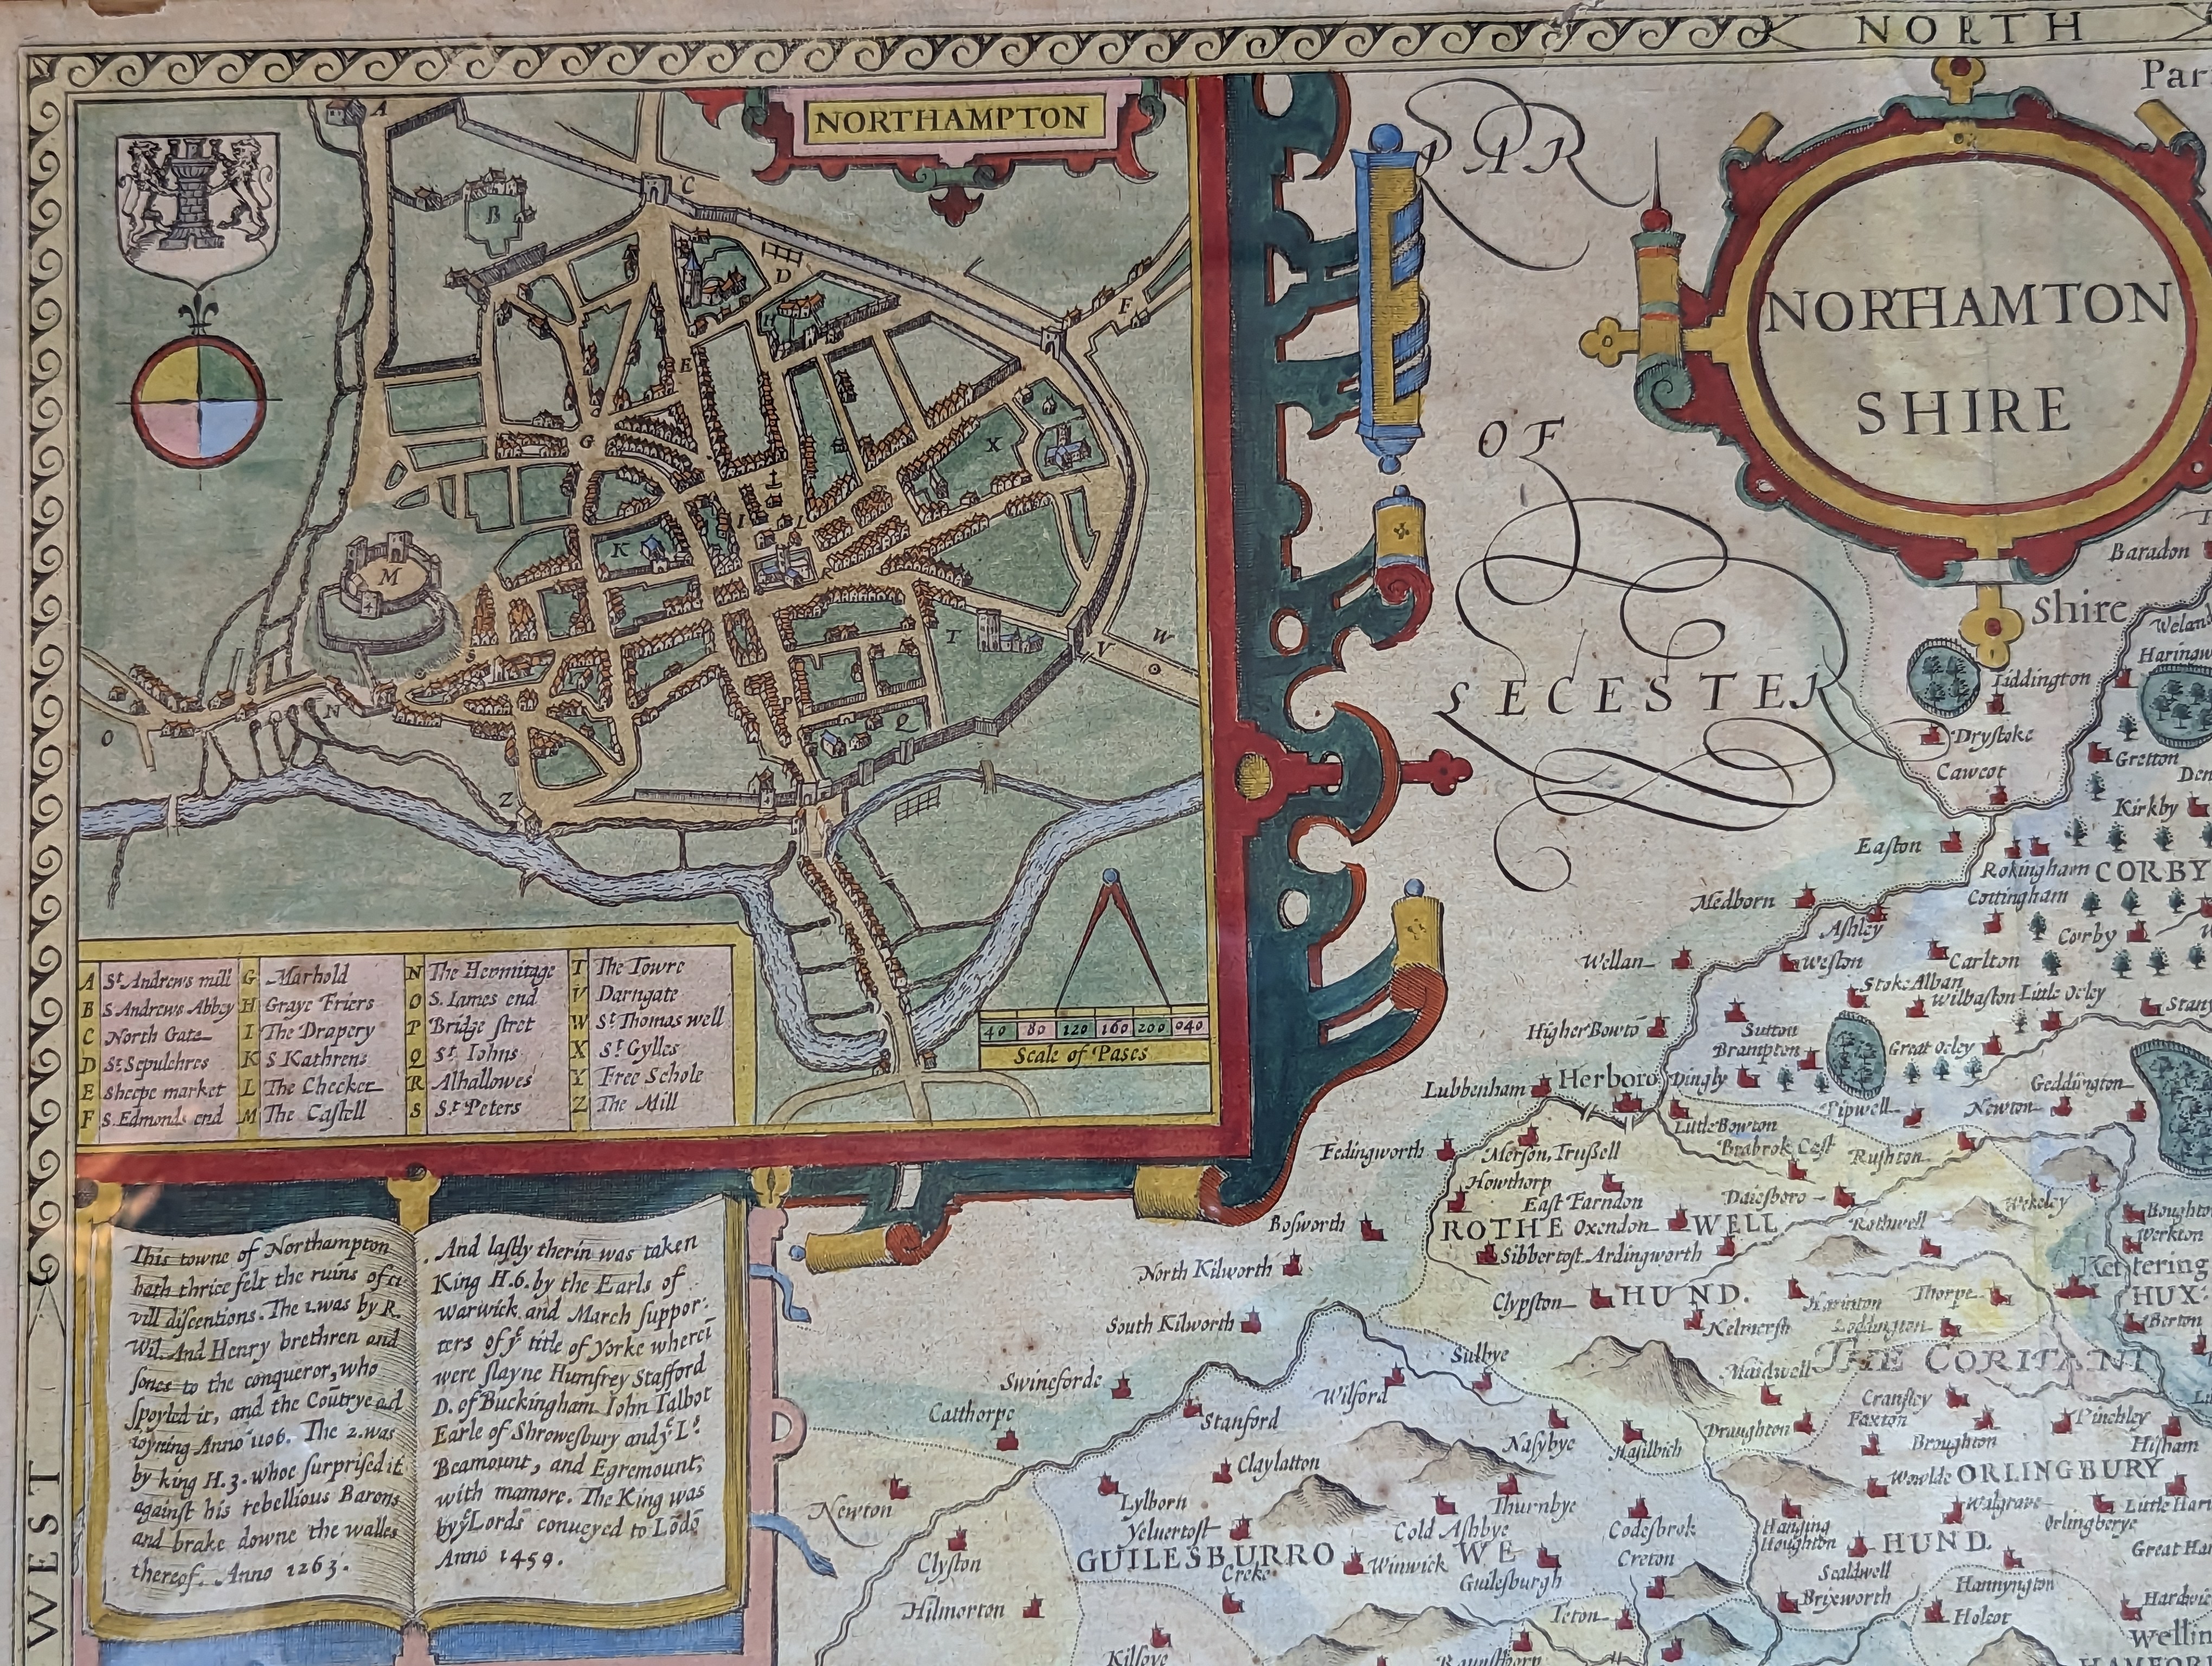 NORTH
Par
NORTHAMPTON
A
B
C
D
H
E
F
G
X
I
L
K
M
R
T
V
W
S
N
O
P
Q
Z
40 80 120 160 200 040
Scale of Pases
A St. Andrews mill
B S. Andrews Abbey
C North Gate
D St Sepulchres
E Sheepe market
F S. Edmonds end
G Marhold
H Graye Friers
I The Drapery
K S Kathrens
L The Checker
M The Castell
N The Hermitage
O S. Iames end
P Bridge stret
Q St. Iohns
R Alhallowes
S St. Peters
T The Towre
V Darngate
W St Thomas well
X St Gylles
Y Free Schole
Z The Mill
This towne of Northampton
hath thrice felt the ruins of ci
vill discentions. The 1. was by R.
Wil. And Henry brethren and
sones to the conqueror, who
spoyled it, and the Coūtrye ad
ioyning Anno 1106. The 2. was
by king H. 3. whoe surprised it
against his rebellious Barons
and brake downe the walles
thereof. Anno 1263.
And lastly therin was taken
King H. 6. by the Earls of
Warwick and March suppor:
ters of yᵉ title of Yorke wherei
were slayne Humfrey Stafford
D. of Buckingham Iohn Talbot
Earle of Shrowesbury and yᵉ Lˢ.
Beamount, and Egremount,
with mamore. The King was
by yᵉ Lords conueyed to Lōdō
Anno 1459.
WEST
PAR
OF
LECESTER
NORTHAMTON
SHIRE
Baradon
Shire
Welan
Haringw
Liddington
Drystoke
Gretton
Cawcot
Kirkby
Easton
Rokingham
CORBY
Cottingham
Medborn
Ashley
Corby
Wellan
Weston
Carlton
Stoke Alban
Wilbaston
Little Ocley
Stany
Higher Bowtō
Sutton
Brampton
Great Ocley
Lubbenham
Herboro
Dingly
Geddington
Pipwell
Newton
Little Bowton
Fedingworth
Merson, Trussell
Brabrok Cest
Rushton
Howthorp
East Farndon
Daiesboro
Wekeley
Bosworth
ROTHE
Oxendon
WELL
Rothwell
Boughto
Werkton
Sibbertost
Ardingworth
North Kilworth
Kettering
Clypston
HUND.
Thorpe
HUX
South Kilworth
Kelmersh
Loddington
Berton
Sulbye
THE CORITANI
Maidwell
Swineforde
Wilford
Cransley
Catthorpe
Stanford
Faxton
Pinchley
Draughton
Nasybye
Hasilbich
Broughton
Hisham
Claylatton
Wowlde
ORLINGBURY
Newton
Lylborn
Thurnbye
Walgrave
Little Har
Yeluertoft
Cold Ashbye
Codesbrok
Hanging
Houghton
Orlingberye
Clyston
GUILESBURRO
WE
HUND
Great Har
Winwick
Creton
Creke
Guilesburgh
Scaldwell
Hannyngton
Hilmorton
Teton
Brixworth
Holcot
Hardwic
Wellin
Kilsbye
HAMFOR